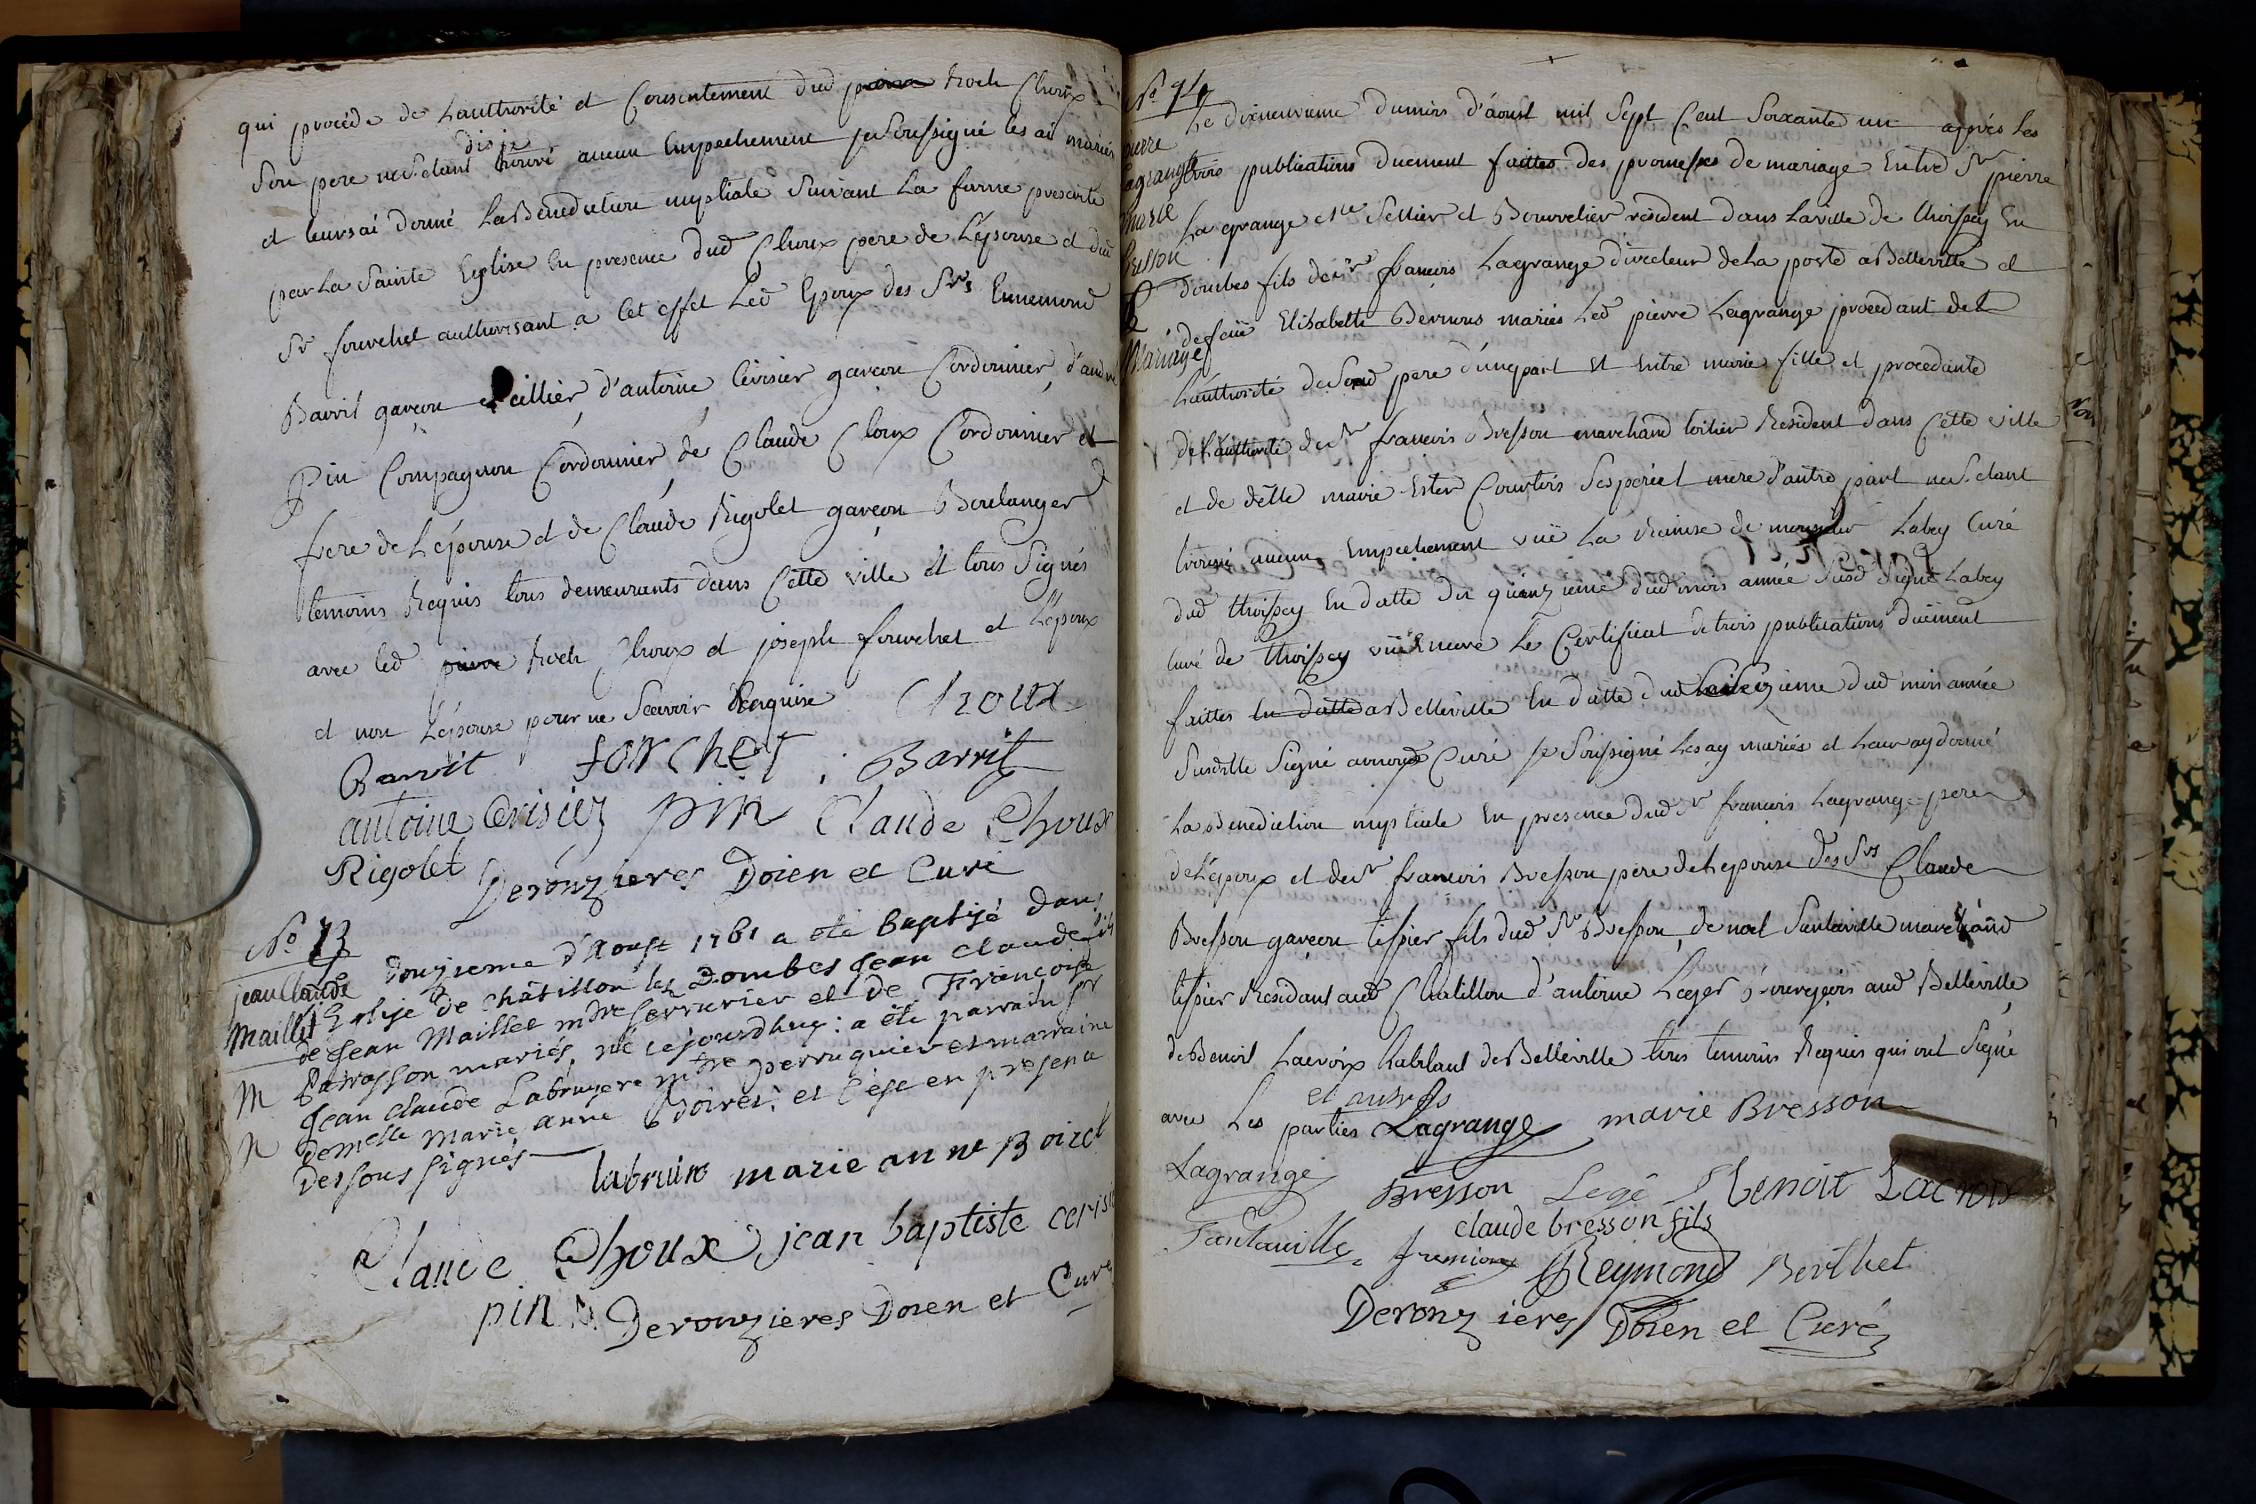 qui procéde de Lauthorité et Consentement dud pierre Roch Choux
dis je
Son pere ne S'etant trouvé aucun Empechement je Soussigné les ai mariés
et leurs ai donné La Benediction nuptiale Suivant La forme prescrite
par La Sainte Eglise En presence dud Choux pere de L'épouse et dud
Sr fourchet authorisant a Cet effet Led Epoux des Srs Ennemond
Barrit garçon d'antoine Cerisier garçon Cordonnier, d'andré
Pin Compagnon Cordonnier, de Claude Choux Cordonnier et
frere de L'épouse et de Claude Rigolet garçon Boulanger
temoins Requis tous demeurants dans Cette ville et tous Signés
avec led pierre Roch Choux et joseph fourchet et L'époux
et non L'épouse pour ne Sçavoir Requise Choux
Barrit fourchet Barrit
antoine Cerisiez pin Claude Choux
Rigolet Deronzieres Doien et Curé
No 73
jean Claude
Maillet
Le Douzieme d'Aoust 1761 a été Baptisé dans
L'Eglise de Châtillon les Dombes Jean Claude fils
de Jean Maillet mtre Serrurier et de Françoise
mariés, né cejourdhuy: a été parrain Sr
Jean Claude Labruyere mtre perruquier et marraine
demelle marie anne Boiret; et c'est en presence
Des sous signés
M
N
labruiro marie anne Boiret
Claude Choux jean baptiste cerisi
pin Deronzieres Doien et Curé
No 74
pierre
Lagrange
marie
Bresson
Mariage
Le dixneuvieme du mois d'aoust mil Sept Cent Soixante un après les
trois publications duement faittes des promesses de mariage Entre Sr pierre
La grange mtre Sellier et Bourrelier résident dans la ville de thoissey En
dombes fils de Sr françois Lagrange directeur de La poste a Belleville et
de feüe Elisabette mariés Led pierre Lagrange procédant de
L'authorité de Sond pere d'une part et Entre marie fille et procedante
de L'authorité de Sr françois Bresson marchand toilier Resident dans Cette ville
et de delle marie Ester Courtois Ses pere et mere d'autre part ne S'etant
trouvé aucun Empechement vüe La Remise de monsieur Labey Curé
dud thoissey En datte du quinzieme dud mois année Susd Signé Labey
Curé de thoissey vüe Encore Le Certificat de trois publications düement
faittes En datte a Belleville En datte du Seizieme dud mois année
Susditte Signé Curé je Soussigné Les ay mariés et Leur ay donné
La Benediction nuptiale En presence dud Sr françois Lagrange pere
de L'époux et de Sr françois Bresson pere de L'epouse des Srs Claude
Bresson garçon tissier fils dud Sr Bresson, de noel Santaville marchand
tissier Residant aud Chatillon d'antoine Leger Bourgeois aud Belleville
de Benoit Lacroix habitant de Belleville tous temoins Requis qui ont Signé
et autres
avec Les parties Lagrange marie Bresson
Lagrange Bresson Legé Benoit Lacroix
claude bresson fils
Santaville Reymond Berthet
Deronzieres Doien et Curé